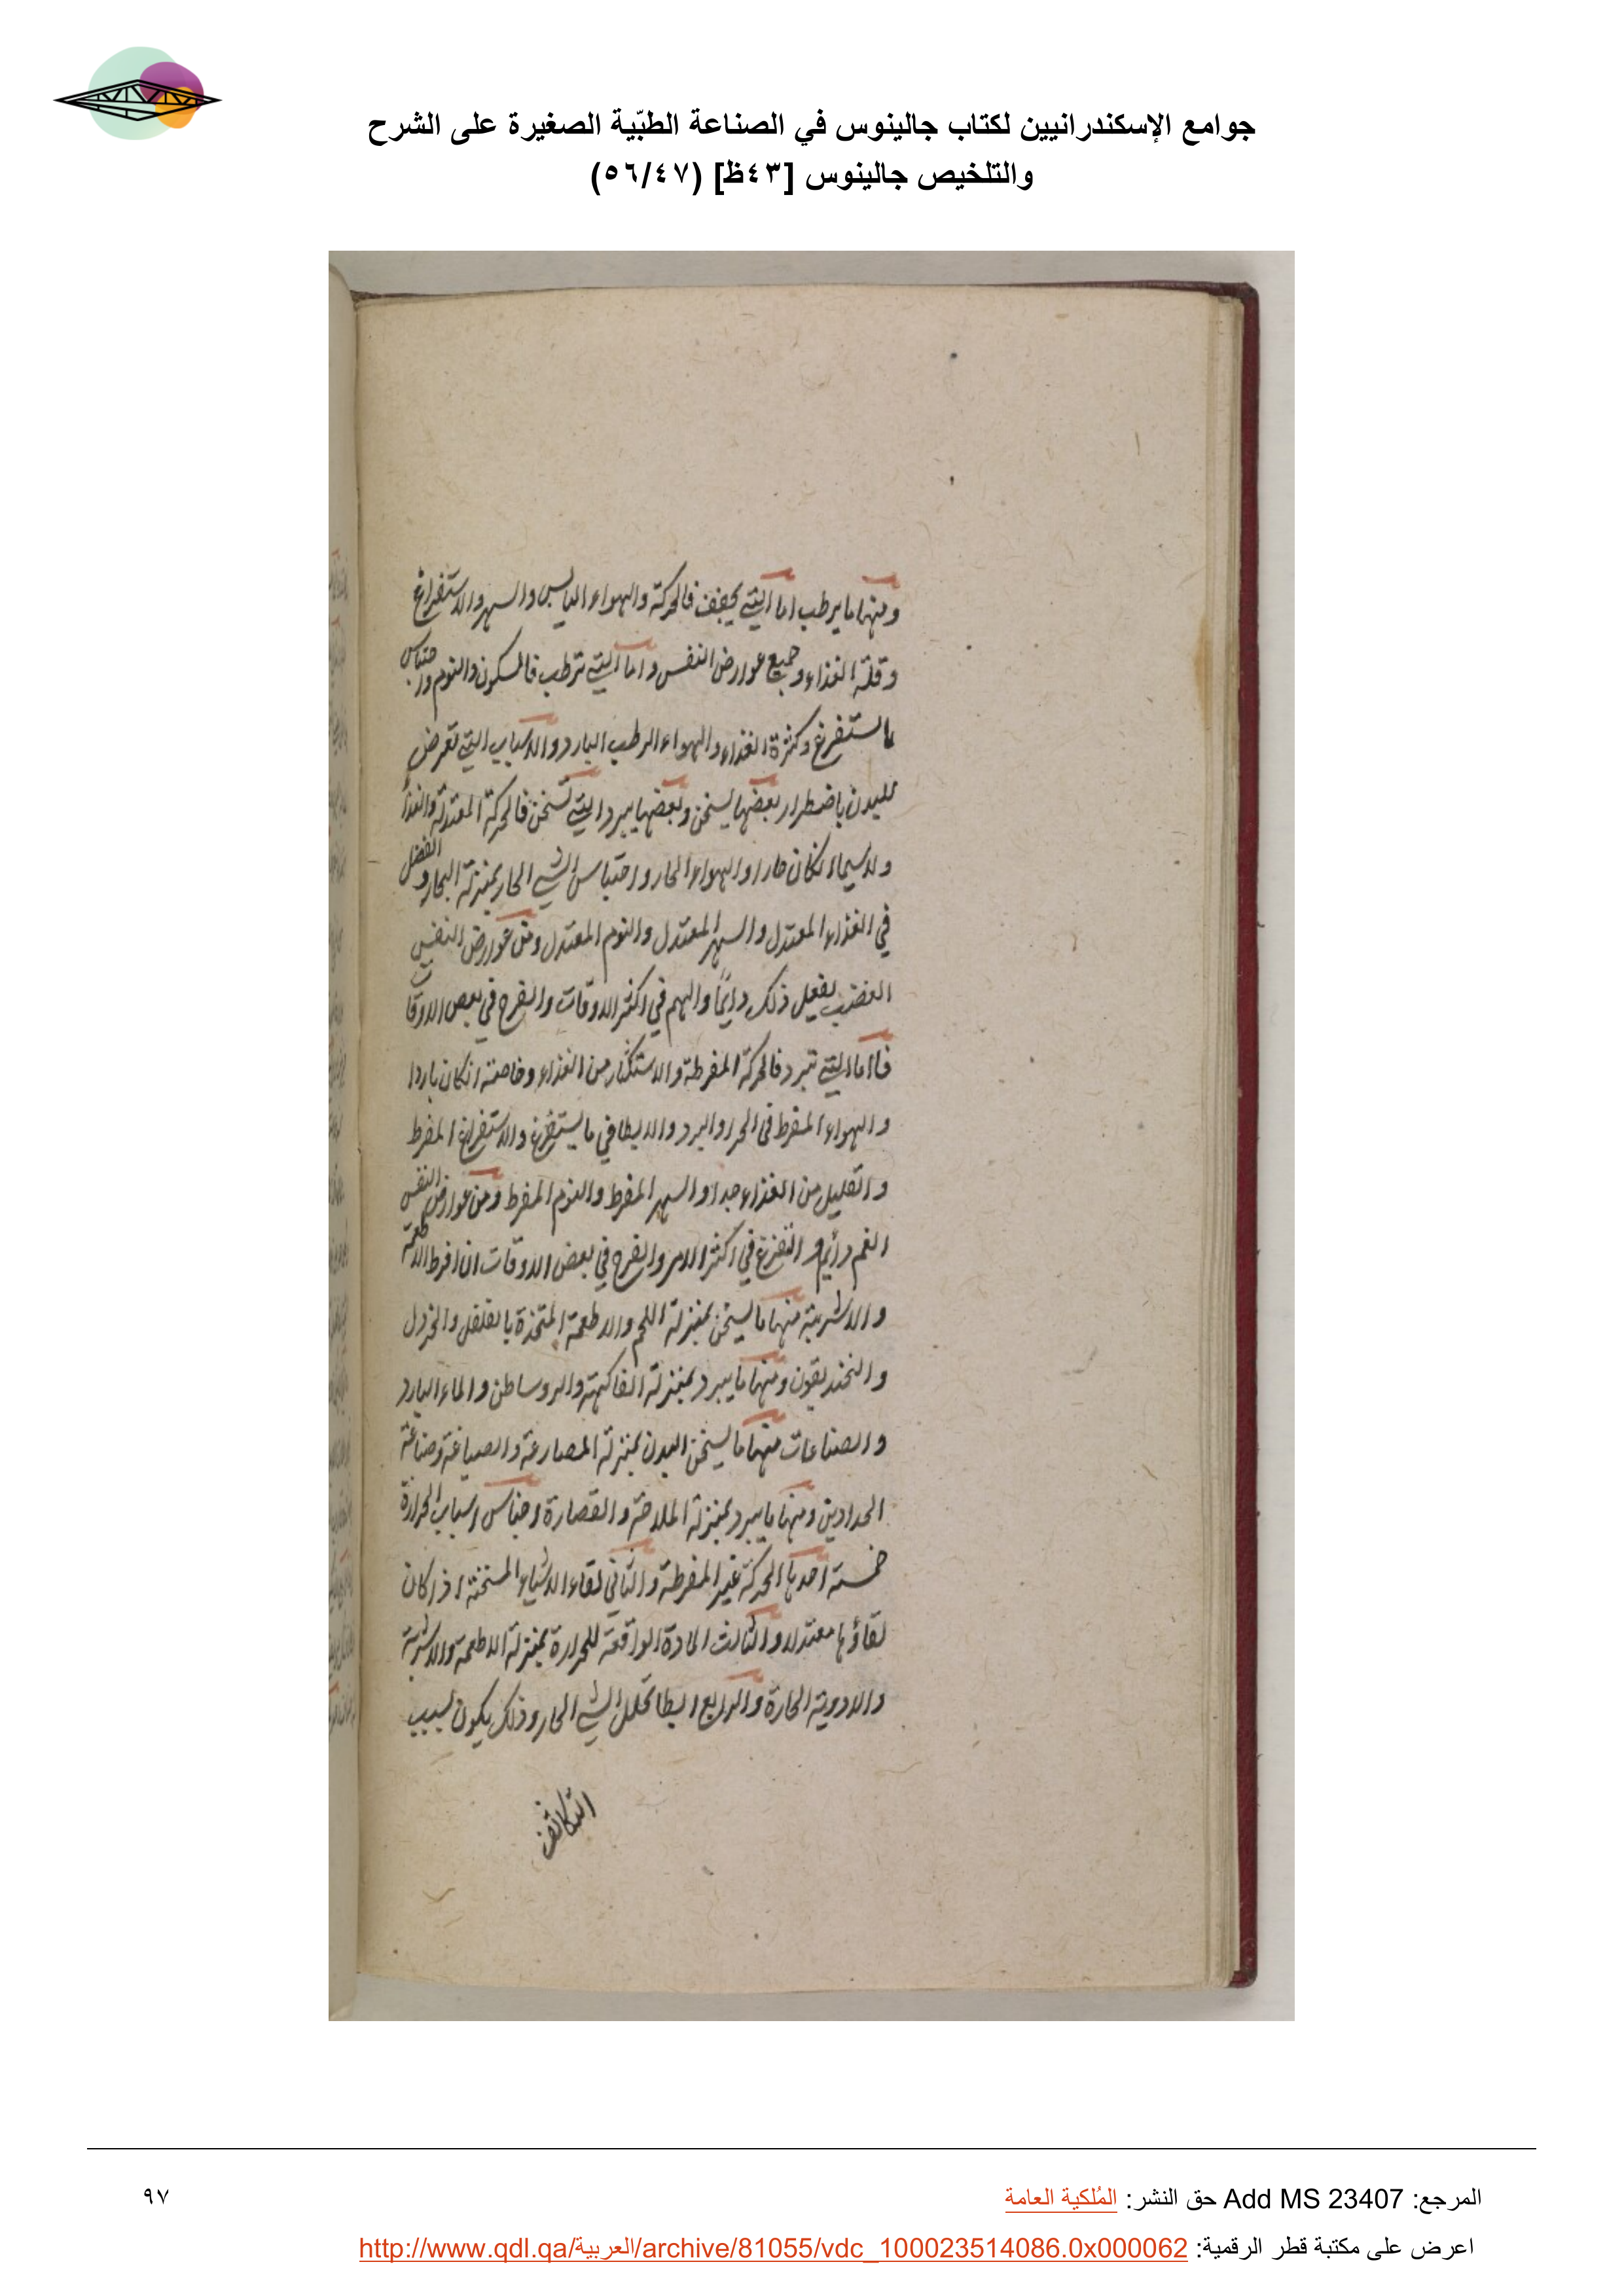 جوامع الإسكندرانيين لكتاب جالينوس في الصناعة الطبّية الصغيرة على الشرح
والتلخيص جالينوس [٤٣ظ] (٥٦/٤٧)
ومنها ما يرطب اما التي يجفف فالحركة والهواء اليابس والسهر والاستفراغ
وقلة الغذاء وجميع عوارض النفس واما التي ترطب فالسكون والنوم واحتباس
ما يستفرغ وكثرة الغذاء والهواء الرطب البارد والاسباب التي تعرض
للبدن باضطرار بعضها يسخن وبعضها يبرد التي تسخن فالحركة المعتدلة والغذا
ولاسيما انكان حارا والهواء الحار واحتباس الشي الحار بمنزلة البخار والفضل
في الغذاء المعتدل والسهر المعتدل والنوم المعتدل ومن عوارض النفس
الغضب يفعل ذلك دايمًا والهم في اكثر الاوقات والفرح في بعض الاوقات
فاما التي تبرد فالحركة المفرطة والاستكثار من الغذاء وخاصته انكان باردا
والهواء المفرط في الحر والبرد والابطا في ما يستفرغ والاستفراغ المفرط
والقليل من الغذاء جدا والسهر المفرط والنوم المفرط ومن عوارض النفس
الغم دايم والتفزع في اكثر الامر والفرح في بعض الاوقات ان افرط الاطعمة
والاشربة منها ما يسخن بمنزلة اللحم والاطعمة المتخذة بالفلفل والخردل
والخنديقون ومنها ما يبرد بمنزلة الفاكهة والروساطن والماء البارد
والصناعات منها ما يسخن البدن بمنزلة المصارعة والصياغة وصناعة
الحدادين ومنها ما يبرد بمنزلة الملاحة والقصارة اجناس اسباب الحرارة
خمسة احدها الحركة غير المفرطة والثاني لقاء الاشياء المسخنة اذا كان
لقاؤها معتدلا والثالث المادة الواقعة للحرارة بمنزلة الاطعمة والاشربة
والادوية الحارة والرابع ابطا تحلل الشي الحار وذلك يكون بسبب
التكاثف
المرجع: Add MS 23407 حق النشر: المُلكية العامة
٩٧
اعرض على مكتبة قطر الرقمية: http://www.qdl.qa/العربية/archive/81055/vdc_100023514086.0x000062